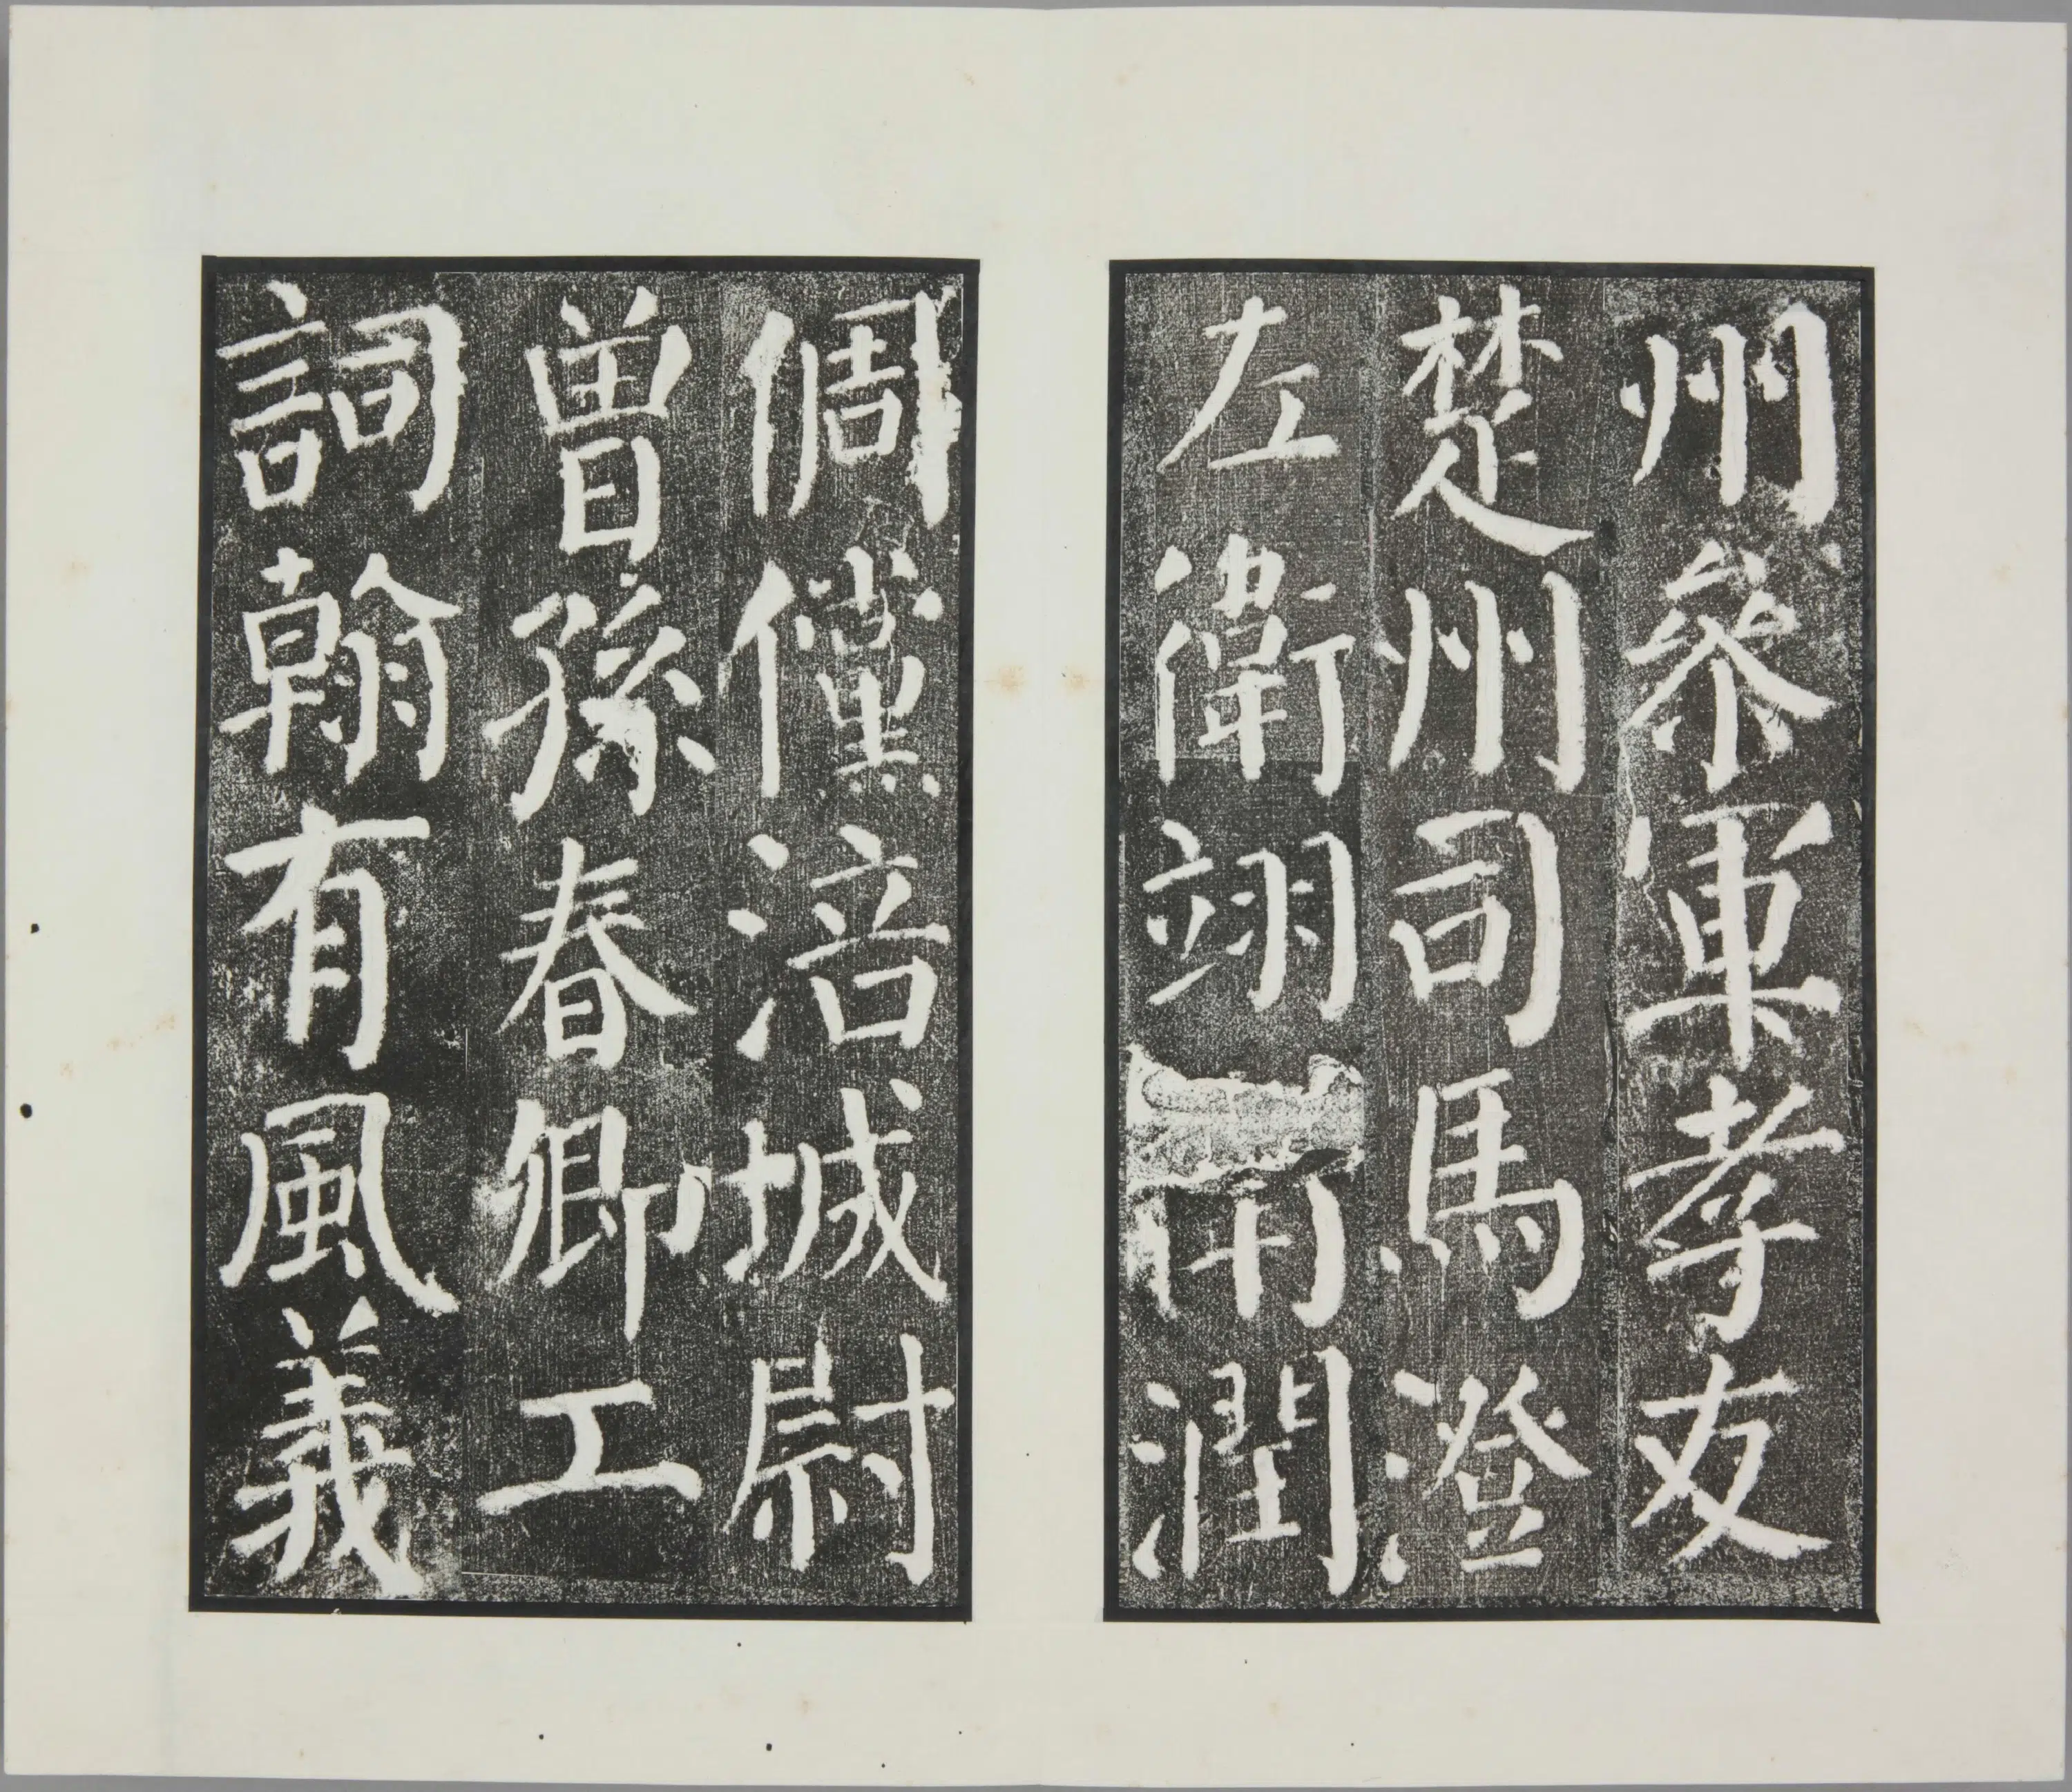 州參軍孝友
楚州司馬澄
左衛翊 潤
倜儻涪城尉
曾孫春卿工
詞翰有風義